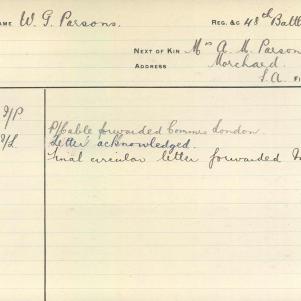 NAME W. G. Parsons. REG. &C 48th Batt
NEXT OF KIN Mrs A. M. Parson
ADDRESS Morchard.
S.A.
I/P P/Cable forwarded Commis London.
I/L. Letter acknowledged.
Final circular letter forwarded